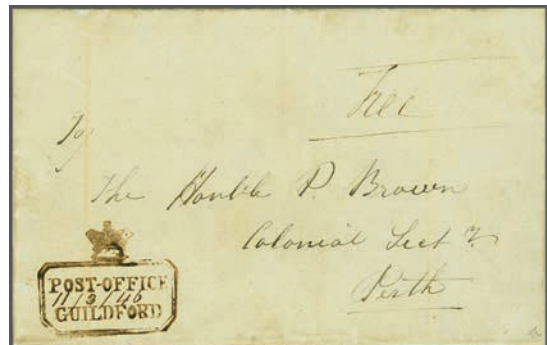 Free
To
The Honble P. Brown
Colonial Sect y.
Perth
POST-OFFICE
11/3/46
GUILDFORD